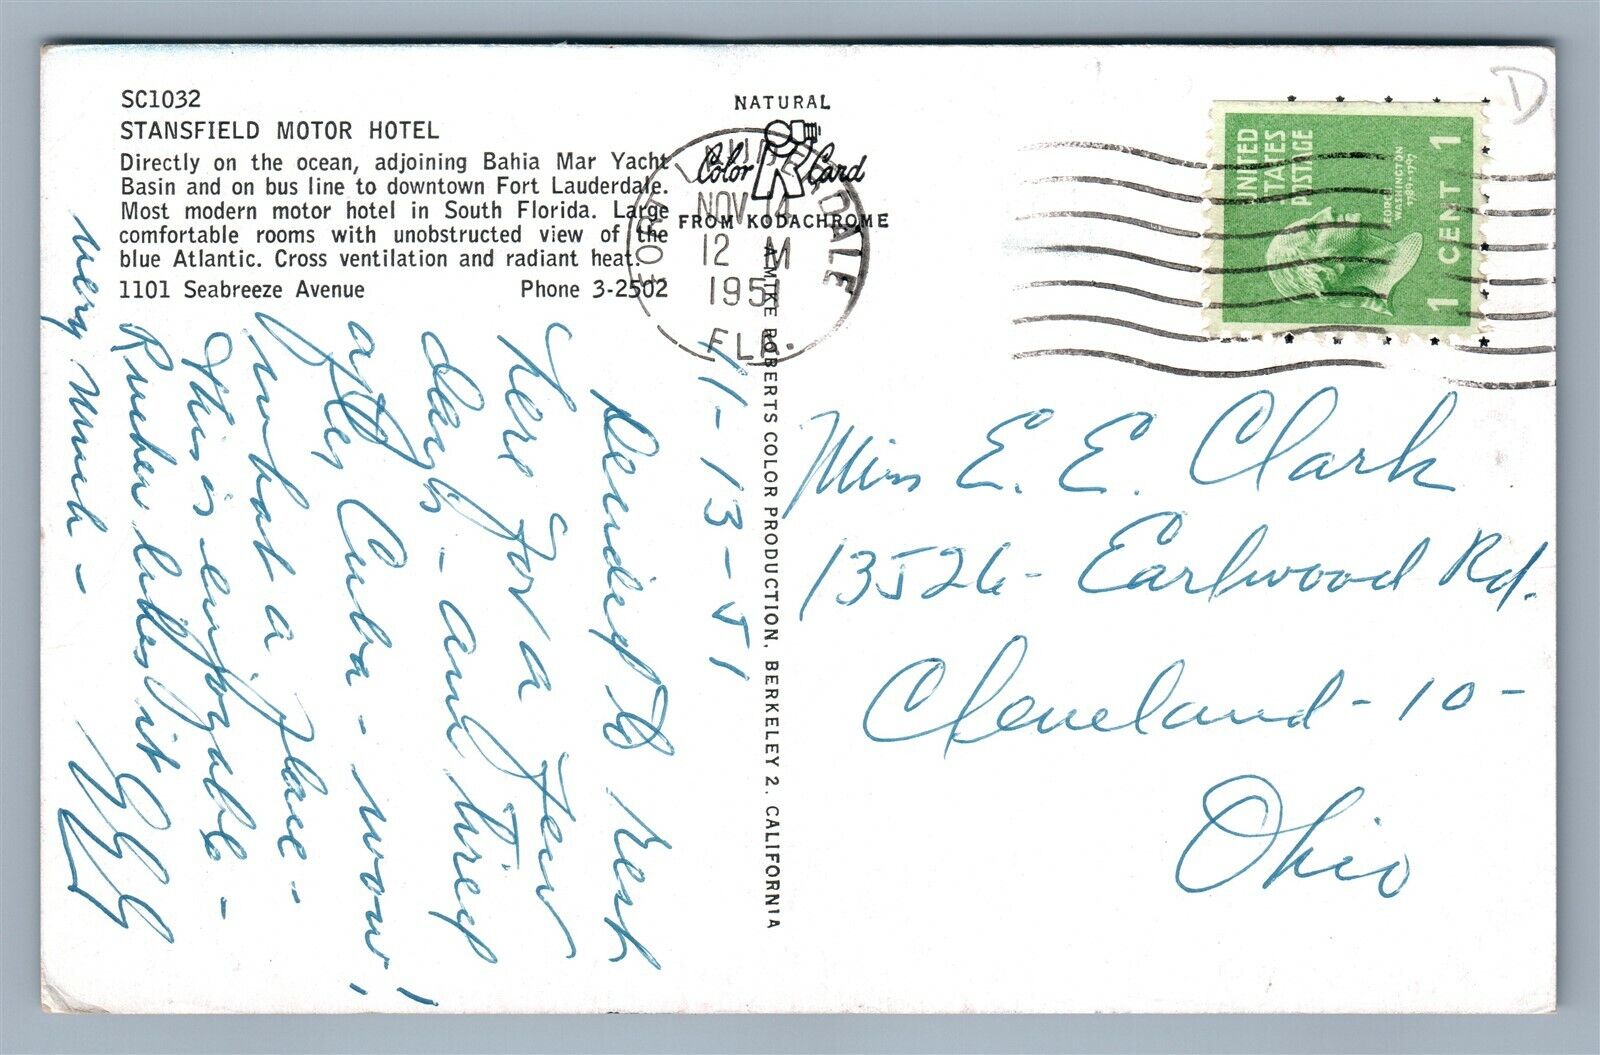 SC1032
STANSFIELD MOTOR HOTEL
Directly on the ocean, adjoining Bahia Mar Yacht
Basin and on bus line to downtown Fort Lauderdale.
Most modern motor hotel in South Florida. Large
comfortable rooms with unobstructed view of the
blue Atlantic. Cross ventilation and radiant heat.
1101 Seabreeze Avenue Phone 3-2502
NATURAL
Color Card
FROM KODACHROME
A MIKE ROBERTS COLOR PRODUCTION, BERKELEY 2, CALIFORNIA
FORT LAUDERDALE
NOV 14
12 M
1951
FLA.
UNITED
STATES
POSTAGE
GEORGE
WASHINGTON
1789-1797
1 CENT 1
D
11-13-51
Decided to rest
here for a few
days - am tired
after Cuba - wow!
what a place -
This is enjoyable -
very much -
Miss E. E. Clark
13526 - Earlwood Rd.
Cleveland - 10 -
Ohio